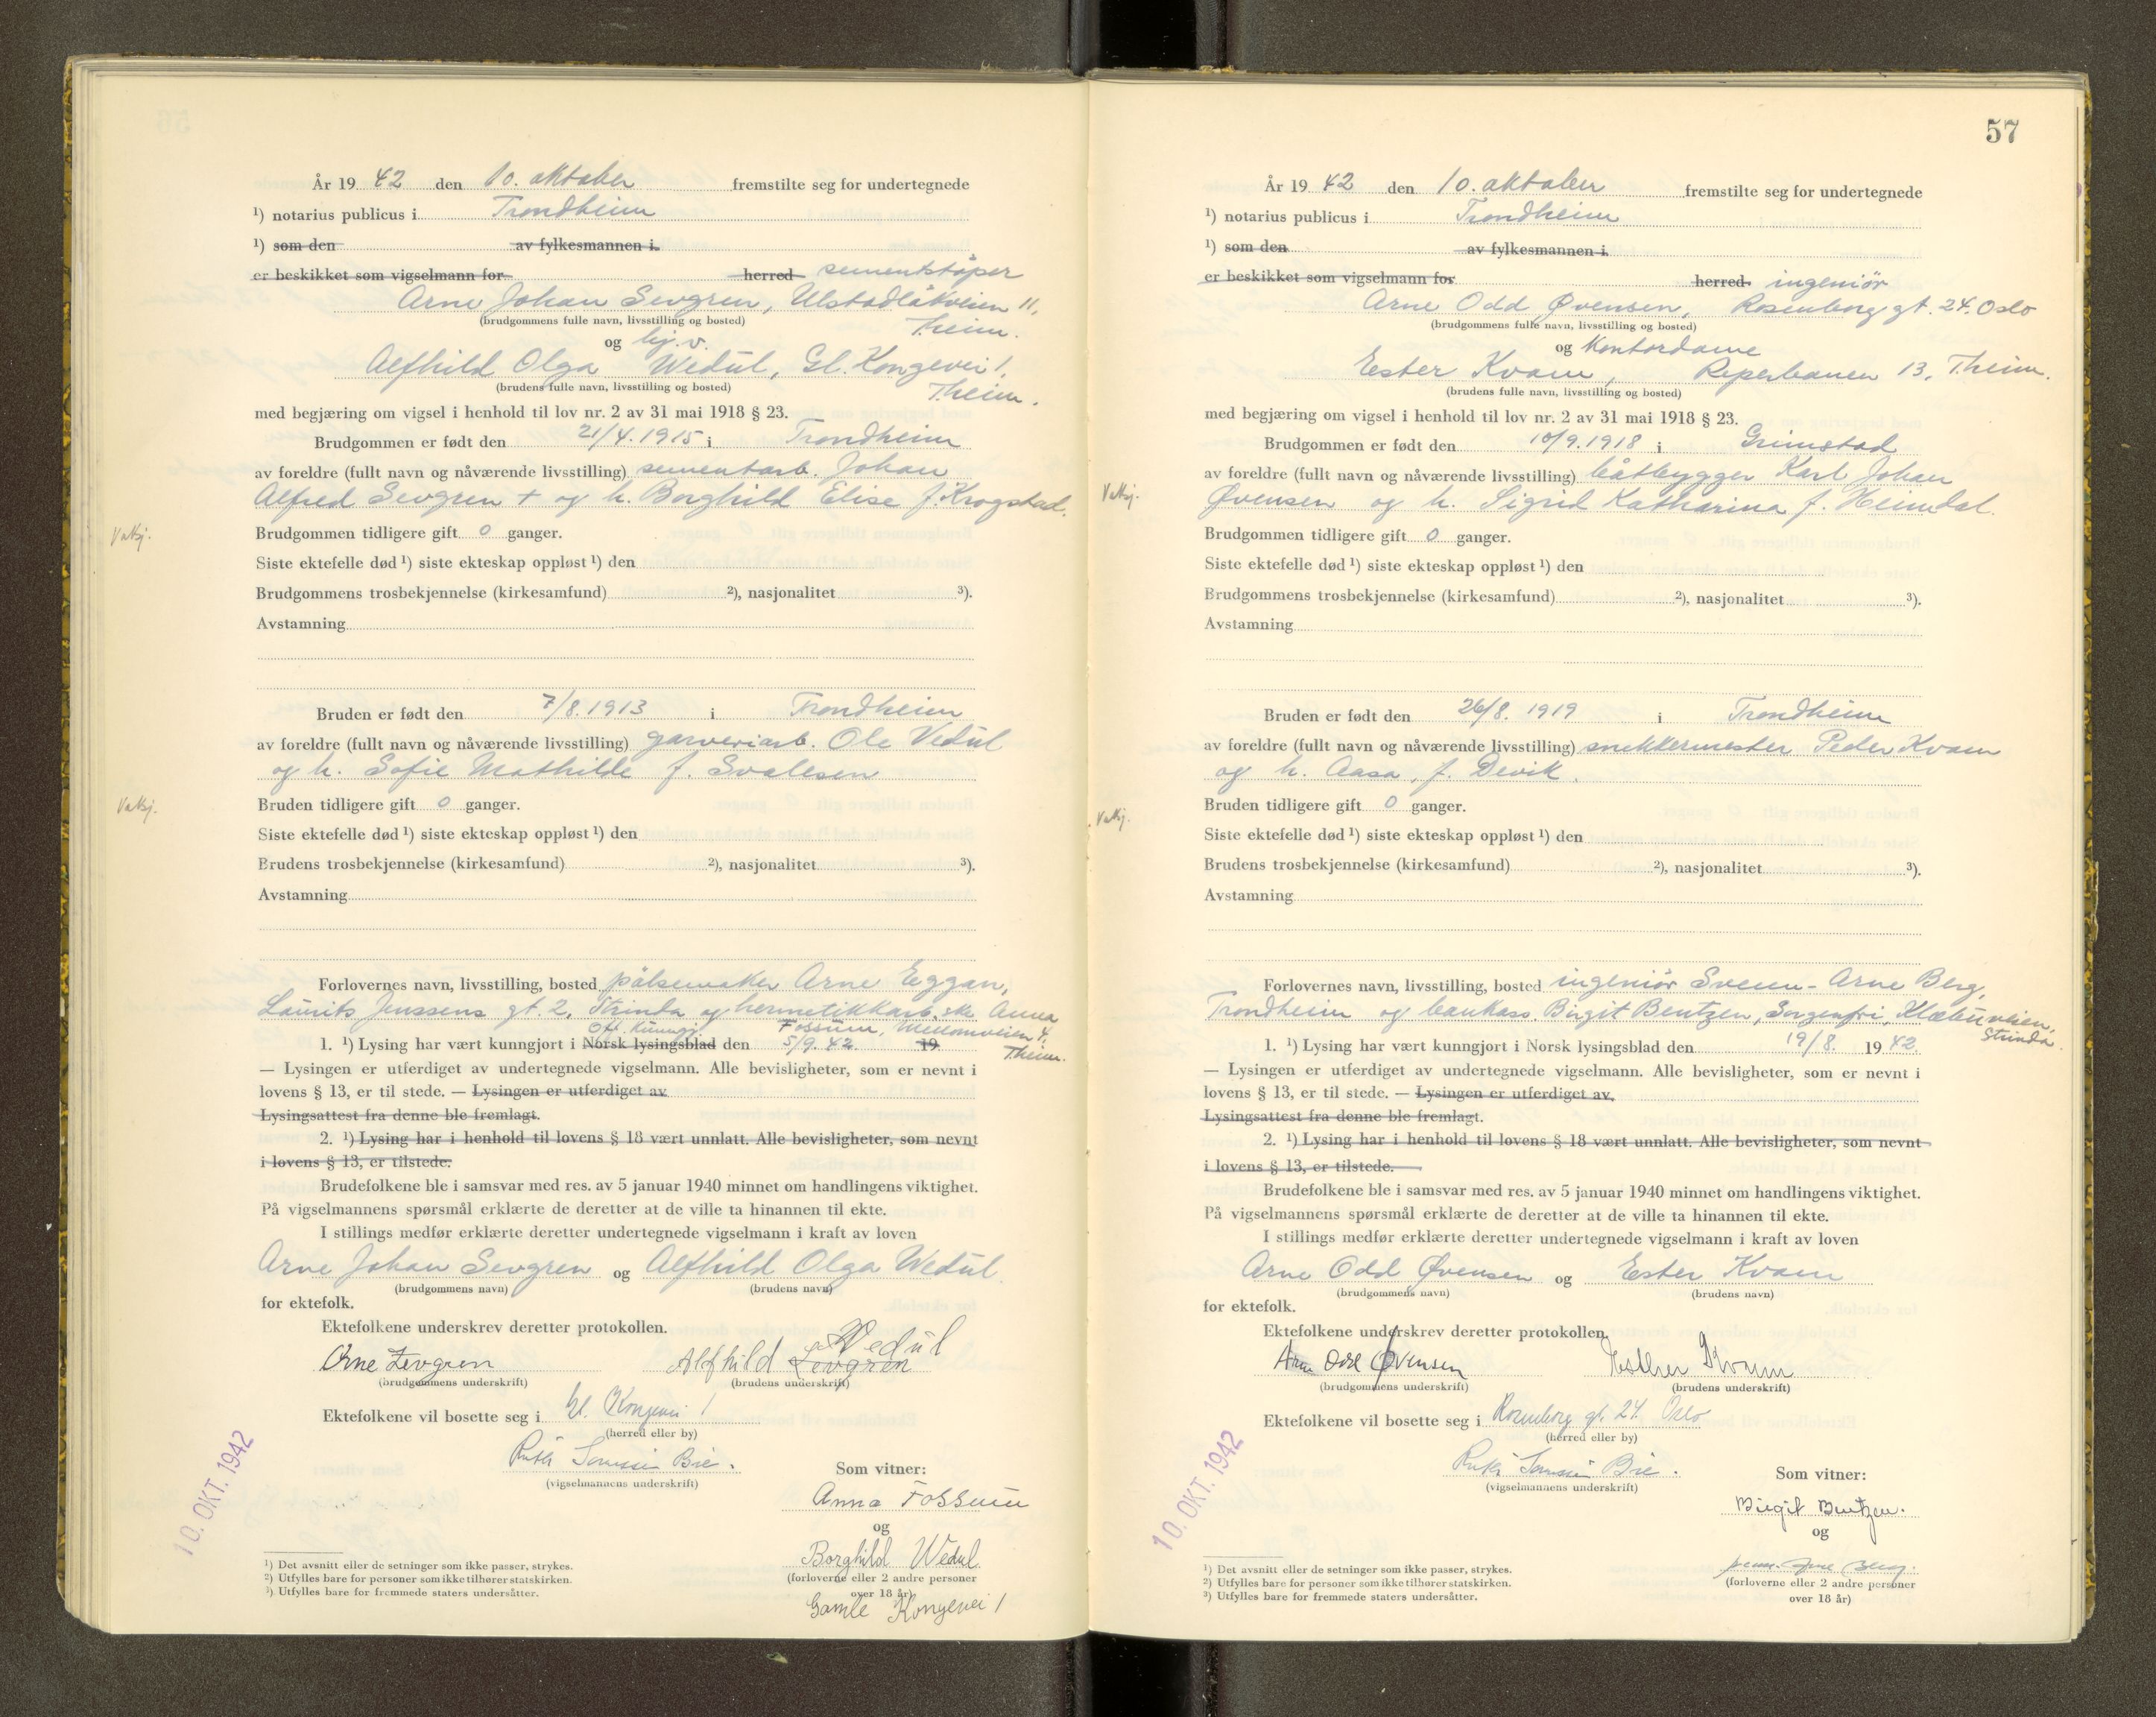 År 19 42 den 10. oktober fremstilte seg for undertegnede
¹) notarius publicus i Trondheim
¹) som den av fylkesmannen i
er beskikket som vigselmann for herred sementstøper
Arne Johan Sevgren, Ulstadløkveien 11,
(brudgommens fulle navn, livsstilling og bosted) T.heim.
og hj.v.
Alfhild Olga Wedul, Gl. Kongevei 1,
(brudens fulle navn, livsstilling og bosted) T.heim.
med begjæring om vigsel i henhold til lov nr. 2 av 31 mai 1918 § 23.
Brudgommen er født den 21/4.1915 i Trondheim
av foreldre (fullt navn og nåværende livsstilling) sementarb. Johan
Alfred Sevgren + og h. Borghild Elise f. Krogstad.
Vatsj.
Brudgommen tidligere gift 0 ganger.
Siste ektefelle død ¹) siste ekteskap oppløst ¹) den
Brudgommens trosbekjennelse (kirkesamfund) ²), nasjonalitet ³).
Avstamning
Bruden er født den 7/8.1913 i Trondheim
av foreldre (fullt navn og nåværende livsstilling) garveriarb. Ole Vedul
og h. Sofie Mathilde f. Svalesen
Vatsj.
Bruden tidligere gift 0 ganger.
Siste ektefelle død ¹) siste ekteskap oppløst ¹) den
Brudens trosbekjennelse (kirkesamfund) ²), nasjonalitet ³).
Avstamning
Forlovernes navn, livsstilling, bosted pølsemaker Arne Eggan,
Laurits Jenssens gt. 2, Strinda og hermetikkarb.ske Anna
Off. Kunngj. Fossum, Mellomveien 4,
1. ¹) Lysing har vært kunngjort i Norsk lysingsblad den 5/9.42. 19 T.heim.
— Lysingen er utferdiget av undertegnede vigselmann. Alle bevisligheter, som er nevnt i
lovens § 13, er til stede. — Lysingen er utferdiget av
Lysingsattest fra denne ble fremlagt.
2. ¹) Lysing har i henhold til lovens § 18 vært unnlatt. Alle bevisligheter, som nevnt
i lovens § 13, er tilstede.
Brudefolkene ble i samsvar med res. av 5 januar 1940 minnet om handlingens viktighet.
På vigselmannens spørsmål erklærte de deretter at de ville ta hinannen til ekte.
I stillings medfør erklærte deretter undertegnede vigselmann i kraft av loven
Arne Johan Sevgren og Alfhild Olga Wedul.
(brudgommens navn) (brudens navn)
for ektefolk.
Ektefolkene underskrev deretter protokollen.
Wedul
Arne Zevgren Alfhild Zevgren
(brudgommens underskrift) (brudens underskrift)
Ektefolkene vil bosette seg i Gl. Kongevei 1
(herred eller by)
10. OKT. 1942
Bie.
(vigselmannens underskrift)
Som vitner:
Anna Fossum
og
Borghild Wedul.
(forloverne eller 2 andre personer
over 18 år)
Gamle Kongevei 1
¹) Det avsnitt eller de setninger som ikke passer, strykes.
²) Utfylles bare for personer som ikke tilhører statskirken.
³) Utfylles bare for fremmede staters undersåtter.
57
År 19 42 den 10. oktober fremstilte seg for undertegnede
¹) notarius publicus i Trondheim
¹) som den av fylkesmannen i
er beskikket som vigselmann for herred ingeniør
Arne Odd Øvensen, Rosenborg gt. 24. Oslo
(brudgommens fulle navn, livsstilling og bosted)
og Kontordame
Ester Kvam, Reperbanen 13, T.heim.
(brudens fulle navn, livsstilling og bosted)
med begjæring om vigsel i henhold til lov nr. 2 av 31 mai 1918 § 23.
Brudgommen er født den 10/9.1918 i Grimstad
av foreldre (fullt navn og nåværende livsstilling) båtbygger Karl Johan
Vatsj.
Øvensen og h. Sigrid Katharina f. Heimdal.
Brudgommen tidligere gift 0 ganger.
Siste ektefelle død ¹) siste ekteskap oppløst ¹) den
Brudgommens trosbekjennelse (kirkesamfund) ²), nasjonalitet ³).
Avstamning
Bruden er født den 26/8. 1919 i Trondheim
av foreldre (fullt navn og nåværende livsstilling) snekkermester Peder Kvam
og h. Aasa, f. Devik.
Bruden tidligere gift 0 ganger.
Vatsj.
Siste ektefelle død ¹) siste ekteskap oppløst ¹) den
Brudens trosbekjennelse (kirkesamfund) ²), nasjonalitet ³).
Avstamning
Forlovernes navn, livsstilling, bosted ingeniør Svenn-Arne Berg,
Trondheim og bankass. Birgit Bentzen, Sorgenfri, Klæbuveien,
Strinda.
1. ¹) Lysing har vært kunngjort i Norsk lysingsblad den 19/8. 19 42.
— Lysingen er utferdiget av undertegnede vigselmann. Alle bevisligheter, som er nevnt i
lovens § 13, er til stede. — Lysingen er utferdiget av
Lysingsattest fra denne ble fremlagt.
2. ¹) Lysing har i henhold til lovens § 18 vært unnlatt. Alle bevisligheter, som nevnt
i lovens § 13, er tilstede.
Brudefolkene ble i samsvar med res. av 5 januar 1940 minnet om handlingens viktighet.
På vigselmannens spørsmål erklærte de deretter at de ville ta hinannen til ekte.
I stillings medfør erklærte deretter undertegnede vigselmann i kraft av loven
Arne Odd Øvensen og Ester Kvam
(brudgommens navn) (brudens navn)
for ektefolk.
Ektefolkene underskrev deretter protokollen.
Arne Odd Øvensen Esther Kvam
(brudgommens underskrift) (brudens underskrift)
Ektefolkene vil bosette seg i Rosenborg gt. 24. Oslo
(herred eller by)
10. OKT. 1942
Bie.
(vigselmannens underskrift)
Som vitner:
Birgit Bentzen.
og
Svenn-Arne Berg.
(forloverne eller 2 andre personer
over 18 år)
¹) Det avsnitt eller de setninger som ikke passer, strykes.
²) Utfylles bare for personer som ikke tilhører statskirken.
³) Utfylles bare for fremmede staters undersåtter.